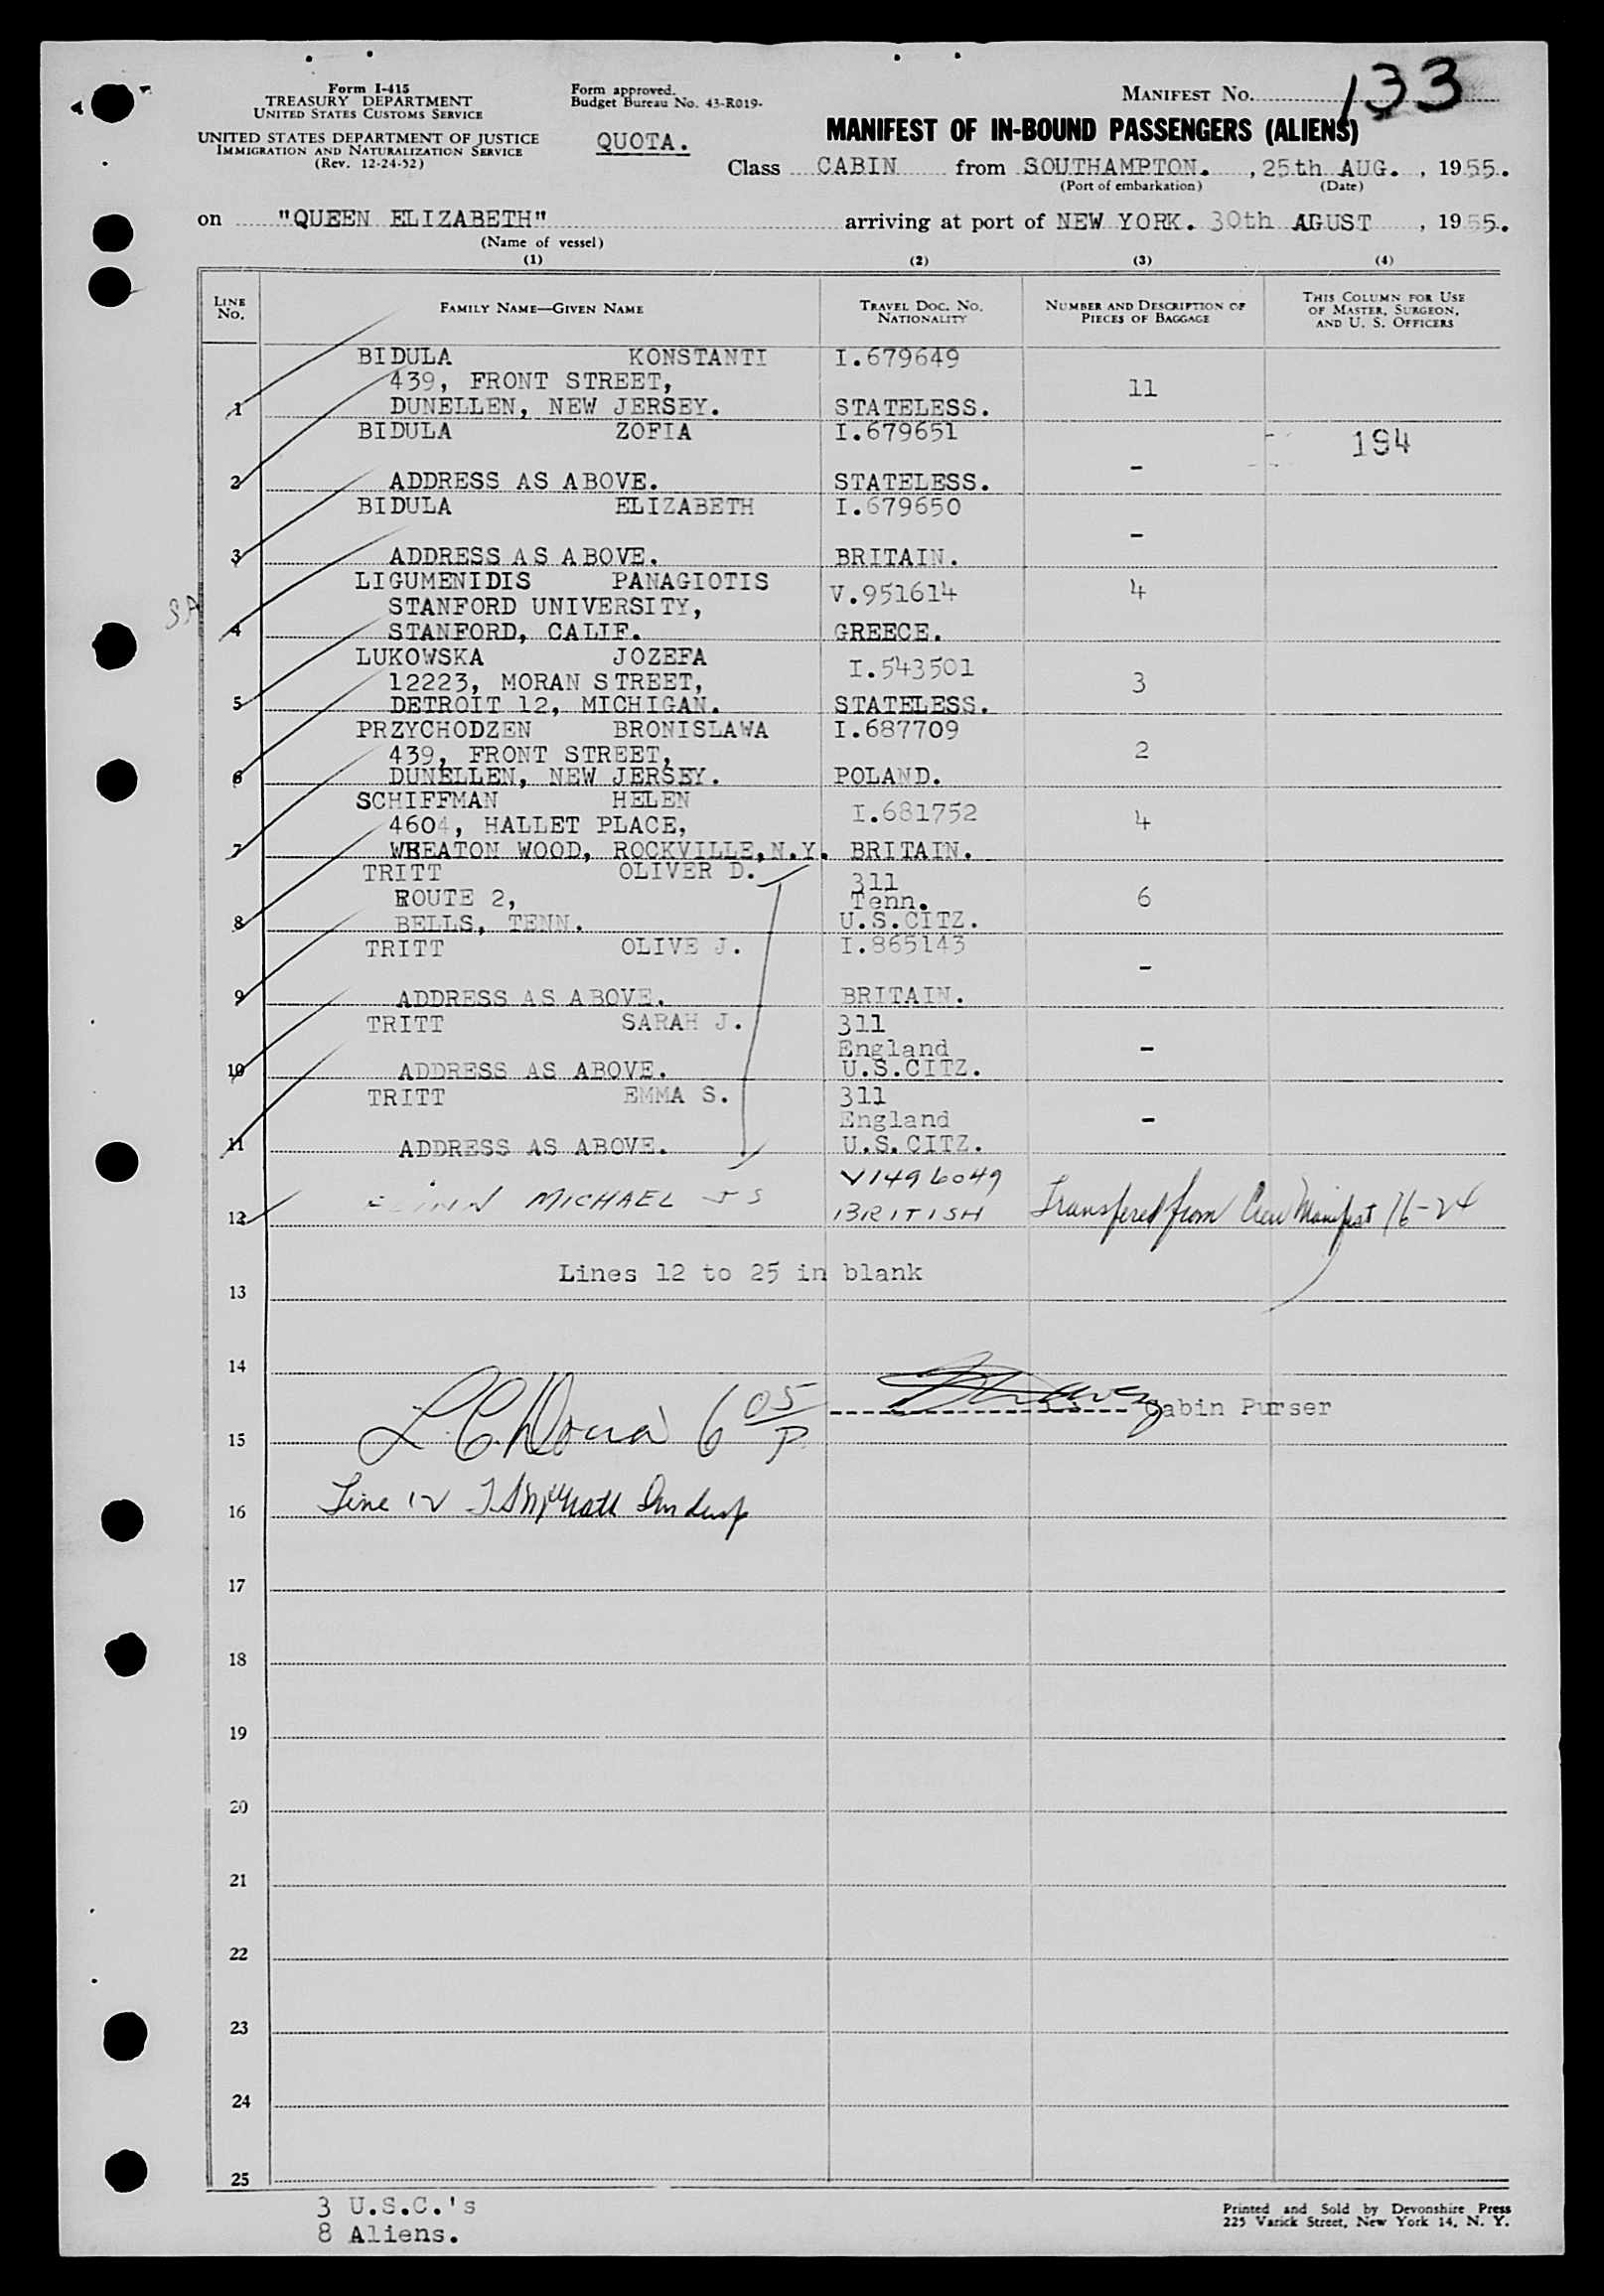 Form I-415
TREASURY DEPARTMENT
UNITED STATES CUSTOMS SERVICE
UNITED STATES DEPARTMENT OF JUSTICE
IMMIGRATION AND NATURALIZATION SERVICE
(Rev. 12-24-52)
Form approved.
Budget Bureau No. 43-R019-
QUOTA.
MANIFEST NO. 133
MANIFEST OF IN-BOUND PASSENGERS (ALIENS)
Class CABIN from SOUTHAMPTON. , 25th AUG. , 1955.
(Port of embarkation) (Date)
on "QUEEN ELIZABETH" arriving at port of NEW YORK. 30th AGUST , 1955.
(Name of vessel)
(1) (2) (3) (4)
LINE NO. FAMILY NAME—GIVEN NAME TRAVEL DOC. NO. NATIONALITY NUMBER AND DESCRIPTION OF PIECES OF BAGGAGE THIS COLUMN FOR USE OF MASTER, SURGEON, AND U. S. OFFICERS
BIDULA KONSTANTI I.679649
439, FRONT STREET, 11
1 DUNELLEN, NEW JERSEY. STATELESS.
BIDULA ZOFIA I.679651 194
-
2 ADDRESS AS ABOVE. STATELESS.
BIDULA ELIZABETH I.679650
-
3 ADDRESS AS ABOVE. BRITAIN.
LIGUMENIDIS PANAGIOTIS V.951614 4
STANFORD UNIVERSITY,
4 STANFORD, CALIF. GREECE.
LUKOWSKA JOZEFA I.543501
12223, MORAN STREET, 3
5 DETROIT 12, MICHIGAN. STATELESS.
PRZYCHODZEN BRONISLAWA I.687709
439, FRONT STREET, 2
6 DUNELLEN, NEW JERSEY. POLAND.
SCHIFFMAN HELEN I.681752
4604, HALLET PLACE, 4
7 WHEATON WOOD, ROCKVILLE, N.Y. BRITAIN.
TRITT OLIVER D. 311
ROUTE 2, Tenn. 6
8 BELLS, TENN. U.S.CITZ.
TRITT OLIVE J. I.865143
-
9 ADDRESS AS ABOVE. BRITAIN.
TRITT SARAH J. 311
England -
10 ADDRESS AS ABOVE. U.S.CITZ.
TRITT EMMA S. 311
England -
11 ADDRESS AS ABOVE. U.S.CITZ.
V1496049
12 MICHAEL BRITISH Transfered from Crew Manifest 76-24
Lines 12 to 25 in blank
13
14
Cabin Purser
6 05/P
15
Line 12
16
17
18
19
20
21
22
23
24
25
3 U.S.C.'s
8 Aliens.
Printed and Sold by Devonshire Press
225 Varick Street, New York 14, N. Y.